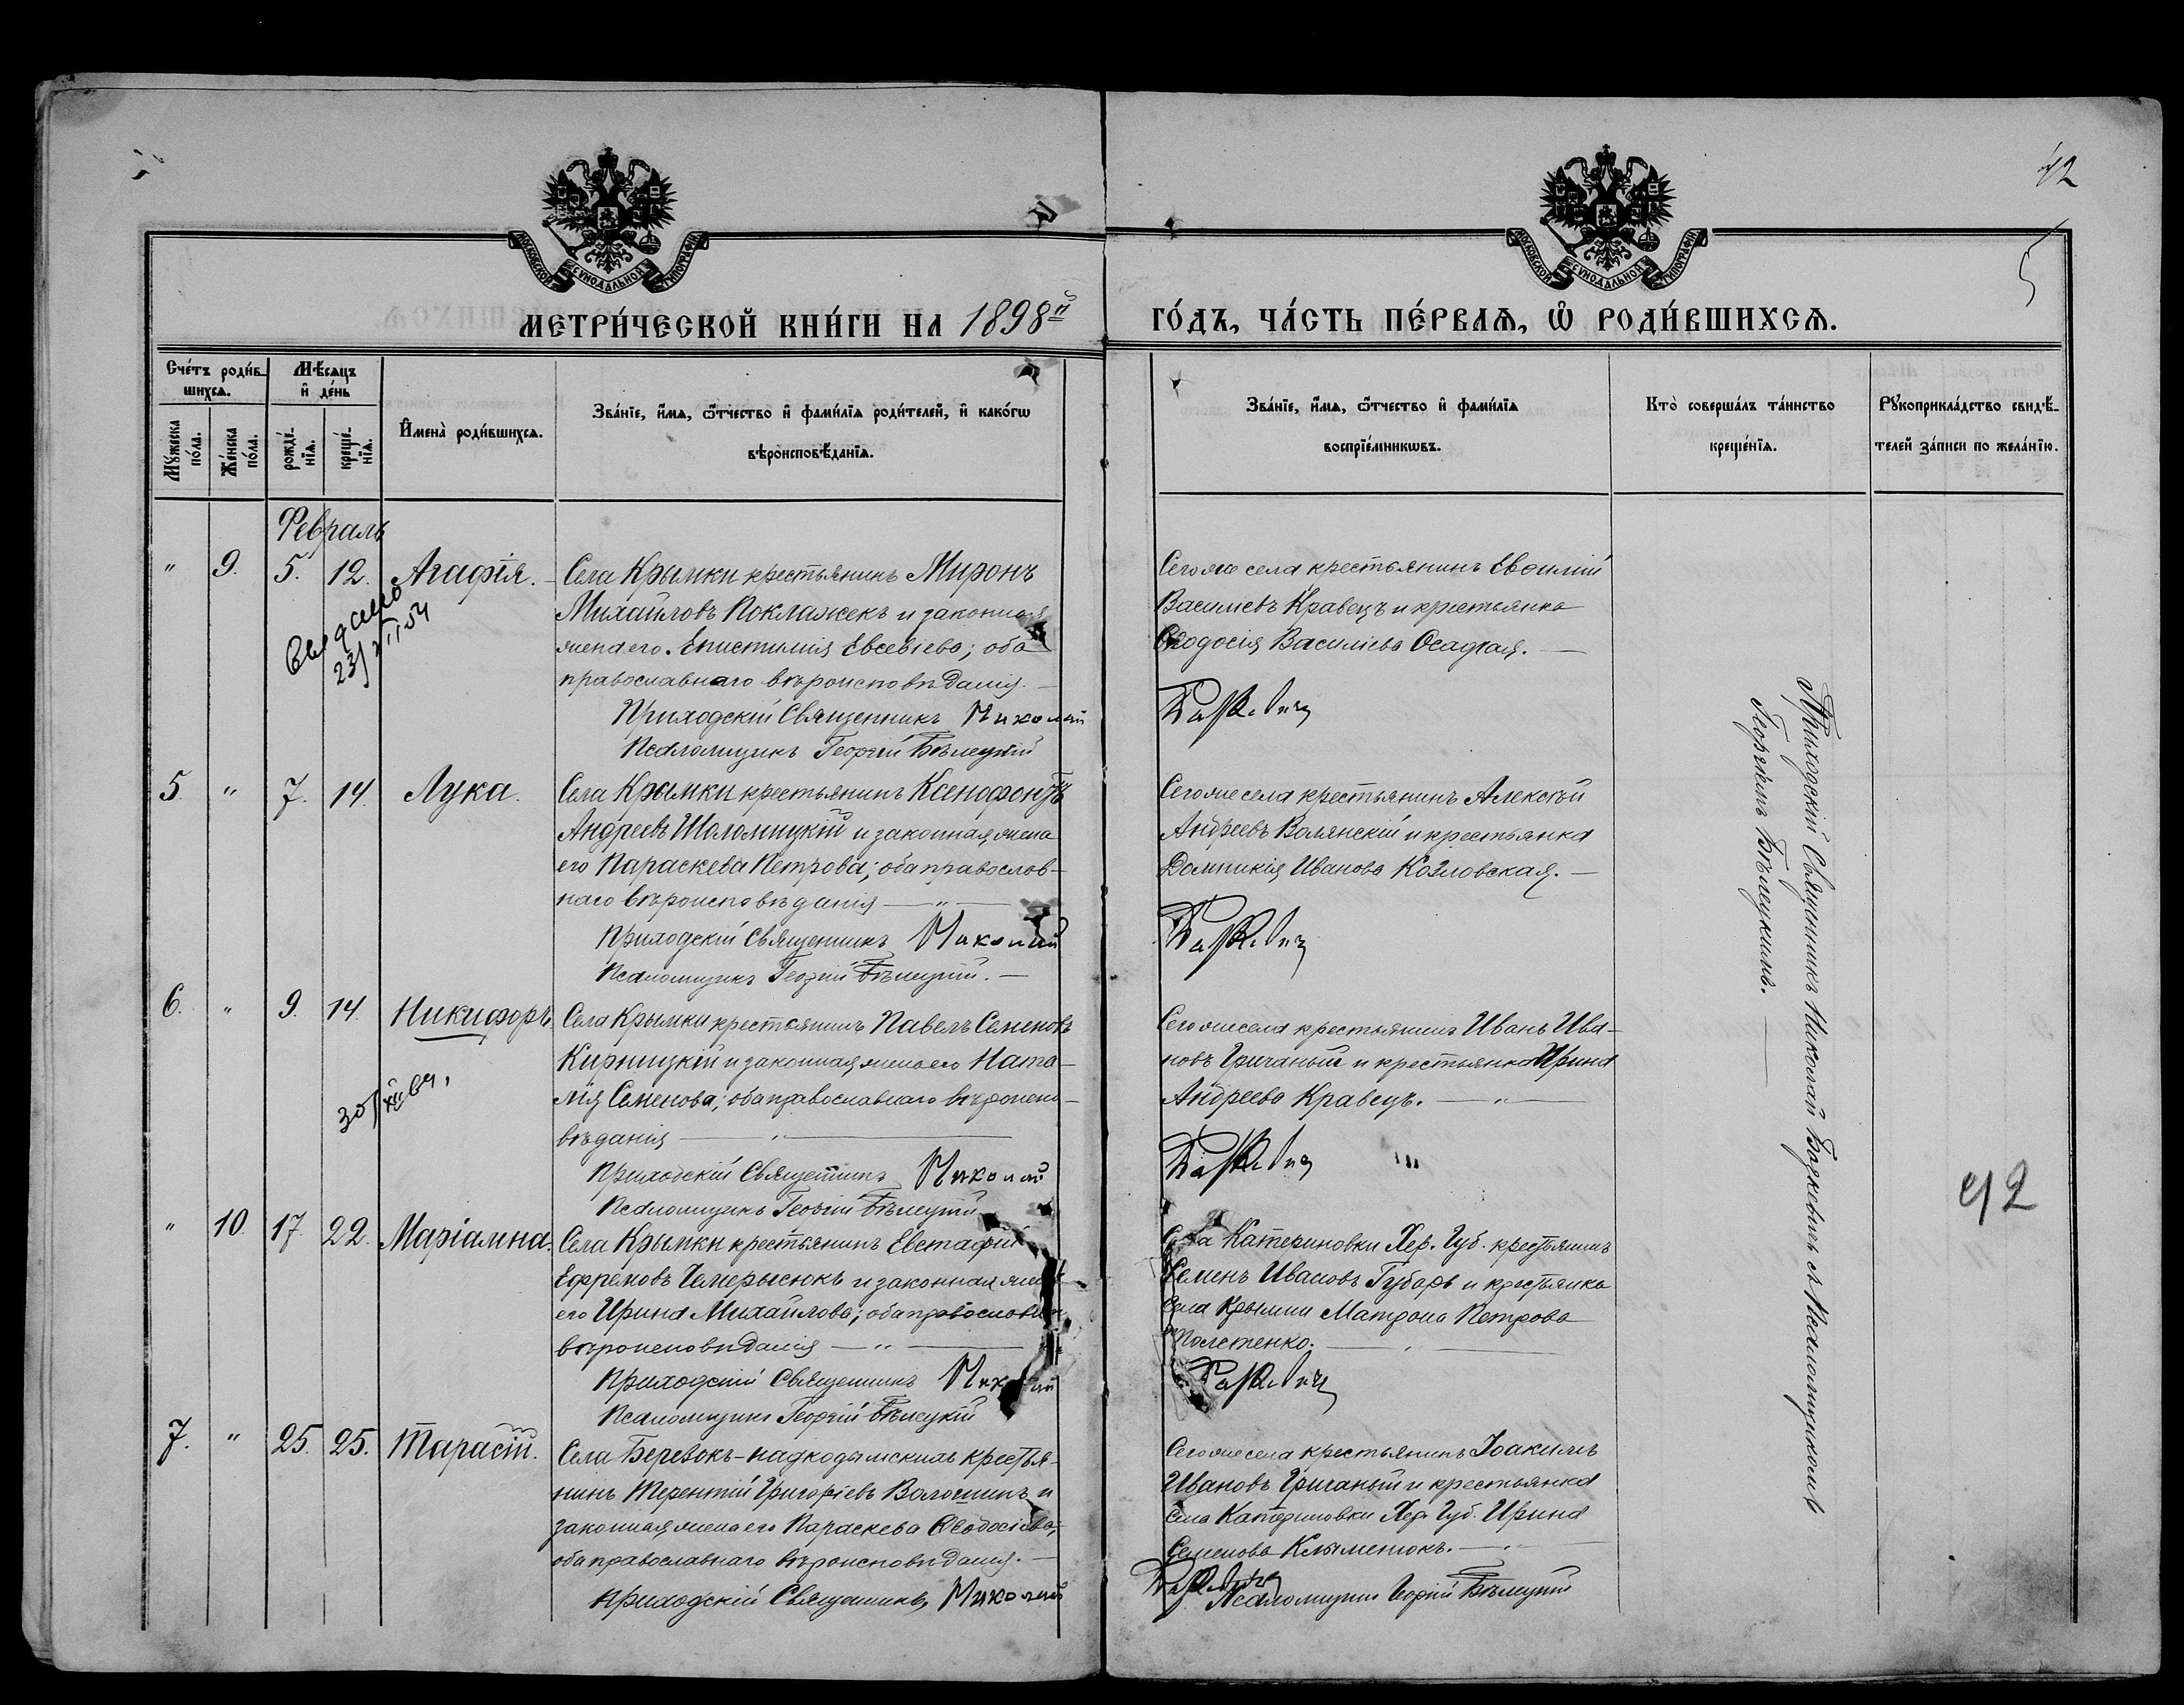 42
5
МОСКОВСКОЙ СУНОДАЛЬНОЙ ТИПОГРАФІИ
МОСКОВСКОЙ СУНОДАЛЬНОЙ ТИПОГРАФІИ
МЕТРИ́ЧЕСКОЙ КНИ́ГИ НА 1898й ГО́ДЪ, ЧА́СТЬ ПЕ́РВАѦ, Ѡ҆ РОДИ́ВШИХСѦ.
Сче́тъ роди́в-
шихсѧ.
Му́жеска по́ла.
Же́нска по́ла.
Мѣ́сѧцъ
и҆ де́нь
рожде́-
нїѧ.
креще́-
нїѧ.
И҆мена̀ роди́вшихсѧ.
Зва́нїе, и҆́мѧ, ѻ҆́тчество и҆ фами́лїѧ роди́телей, и҆ како́гѡ
вѣроисповѣ́данїѧ.
Зва́нїе, и҆́мѧ, ѻ҆́тчество и҆ фами́лїѧ
воспрїе́мникѡвъ.
Кто̀ соверша́лъ та́инство
креще́нїѧ.
Рꙋкоприкла́дство свидѣ́-
телей за́писи по жела́нїю.
Февраль
" 9. 5. 12. Агафія. Села Крымки крестьянинъ Миронъ
Михайловъ Поклажекъ и законная
жена его Епистимія Евсевіева; оба
православнаго вѣроисповѣданія. —
Приходскій Священникъ Николай
Псаломщикъ Георгій Бѣлецкій
23/VII 54
Сего же села крестьянинъ Евфимій
Василіевъ Кравецъ и крестьянка
Ѳеодосія Василіева Осадчая. —
5 " 7. 14. Лука. Села Крымки крестьянинъ Ксенофонтъ
Андреевъ Шоломицкій и законная жена
его Параскева Петрова; оба православ-
наго вѣроисповѣданія — " —
Приходскій Священникъ Николай
Псаломщикъ Георгій Бѣлецкій. —
Сего же села крестьянинъ Алексѣй
Андреевъ Волянскій и крестьянка
Домникія Иванова Козловская. —
6. " 9. 14. Никифоръ. Села Крымки крестьянинъ Павелъ Семеновъ
Кирницкій и законная жена его Ната-
лія Семенова; оба православнаго вѣроиспо-
вѣданія — " —
Приходскій Священникъ Николай
Псаломщикъ Георгій Бѣлецкій
Сего же села крестьянинъ Иванъ Ива-
новъ Гричаный и крестьянка Ирина
Андреева Кравецъ. — " —
" 10. 17. 22. Маріамна. Села Крымки крестьянинъ Евстафій
Ефремовъ Чемерысюкъ и законная жена
его Ирина Михайлова; оба православн
вѣроисповѣданія — " —
Приходскій Священникъ Николай
Псаломщикъ Георгій Бѣлецкій
Села Катериновки Хер. Губ. крестьянинъ
Семенъ Ивановъ Губарь и крестьянка
села Крымки Матрона Петрова
Полетенко. — " —
7. " 25. 25. Тарасій. Села Березокъ-надкодымскихъ крестья-
нинъ Терентій Григоріевъ Волошинъ и
законная жена его Параскева Ѳеодосіева;
оба православнаго вѣроисповѣданія. —
Приходскій Священникъ Николай
Сего же села крестьянинъ Іоакимъ
Ивановъ Гричаный и крестьянка
села Катериновки Хер. Губ. Ирина
Семенова Клыменюкъ. — " —
Псаломщикъ Георгій Бѣлецкій
Приходскій Священникъ Николай съ Псаломщикомъ
Георгіемъ Бѣлецкимъ. —
42